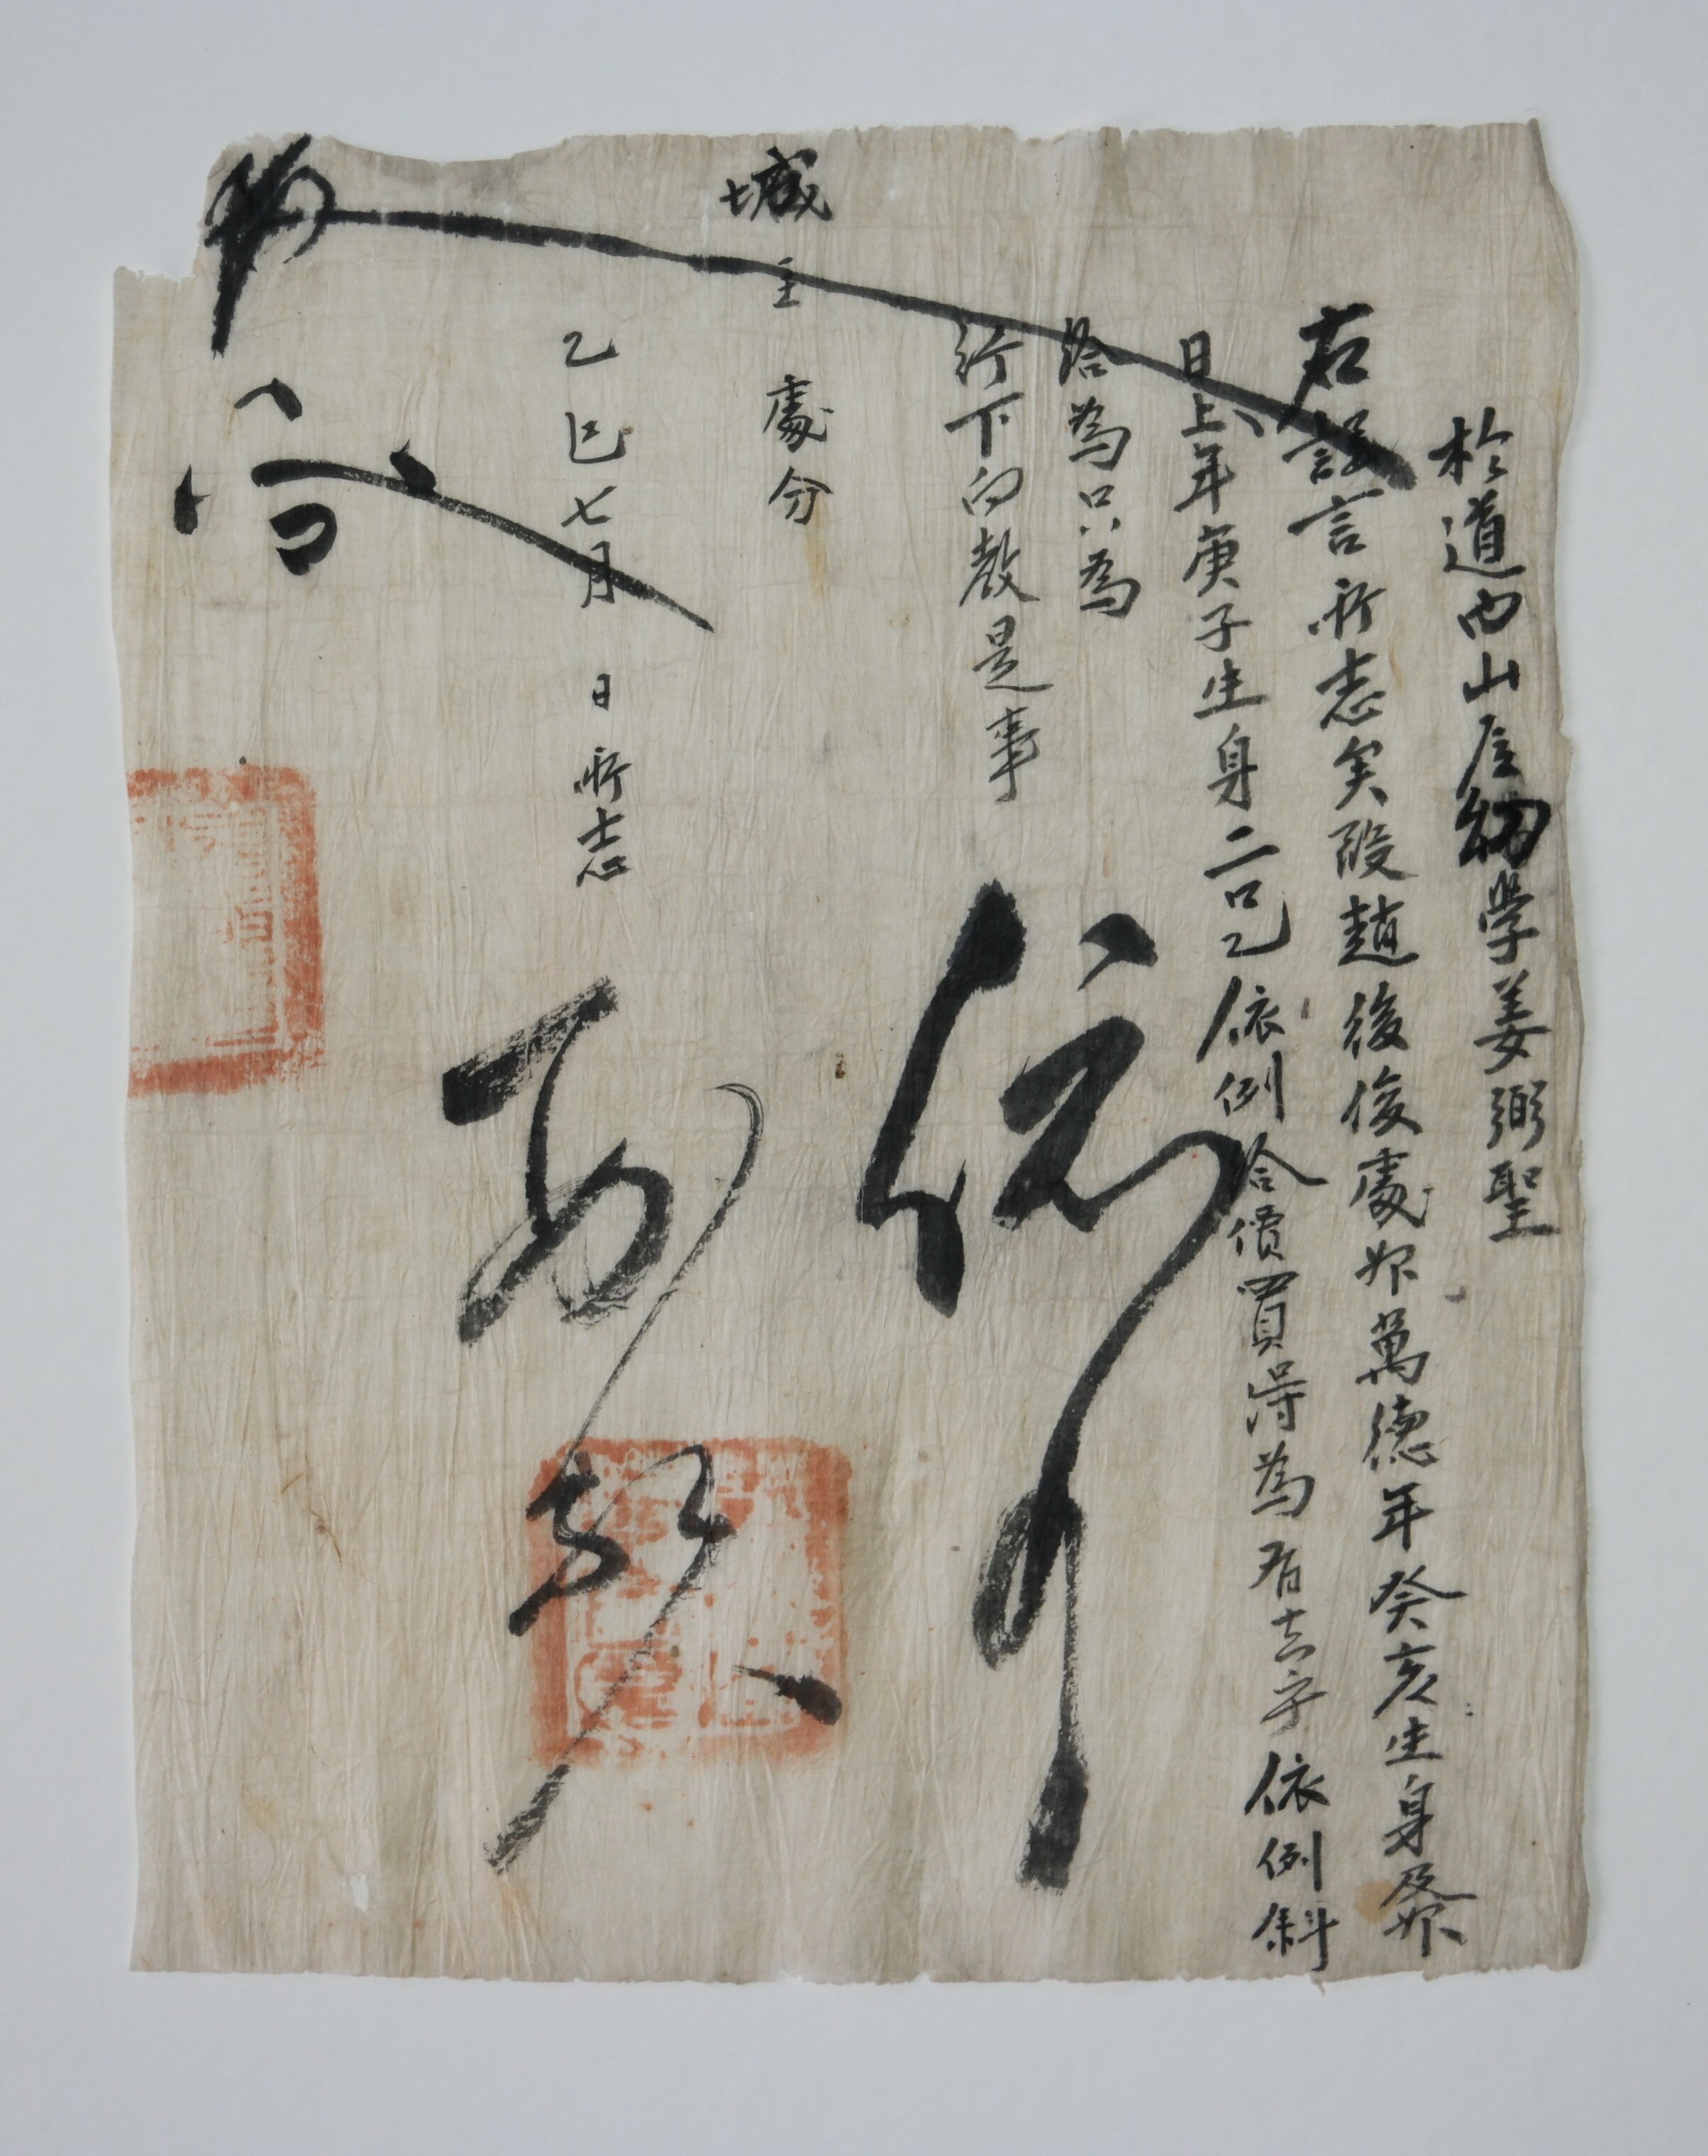 於道內山居幼學姜弼聖
右謹言所志矣段趙後俊處婢萬德年癸亥生身及婢
日上年庚子生身二口乙依例給價買得為有去乎依例斜
給為只為
行下向教是事
城主 處分
乙巳七月 日所志